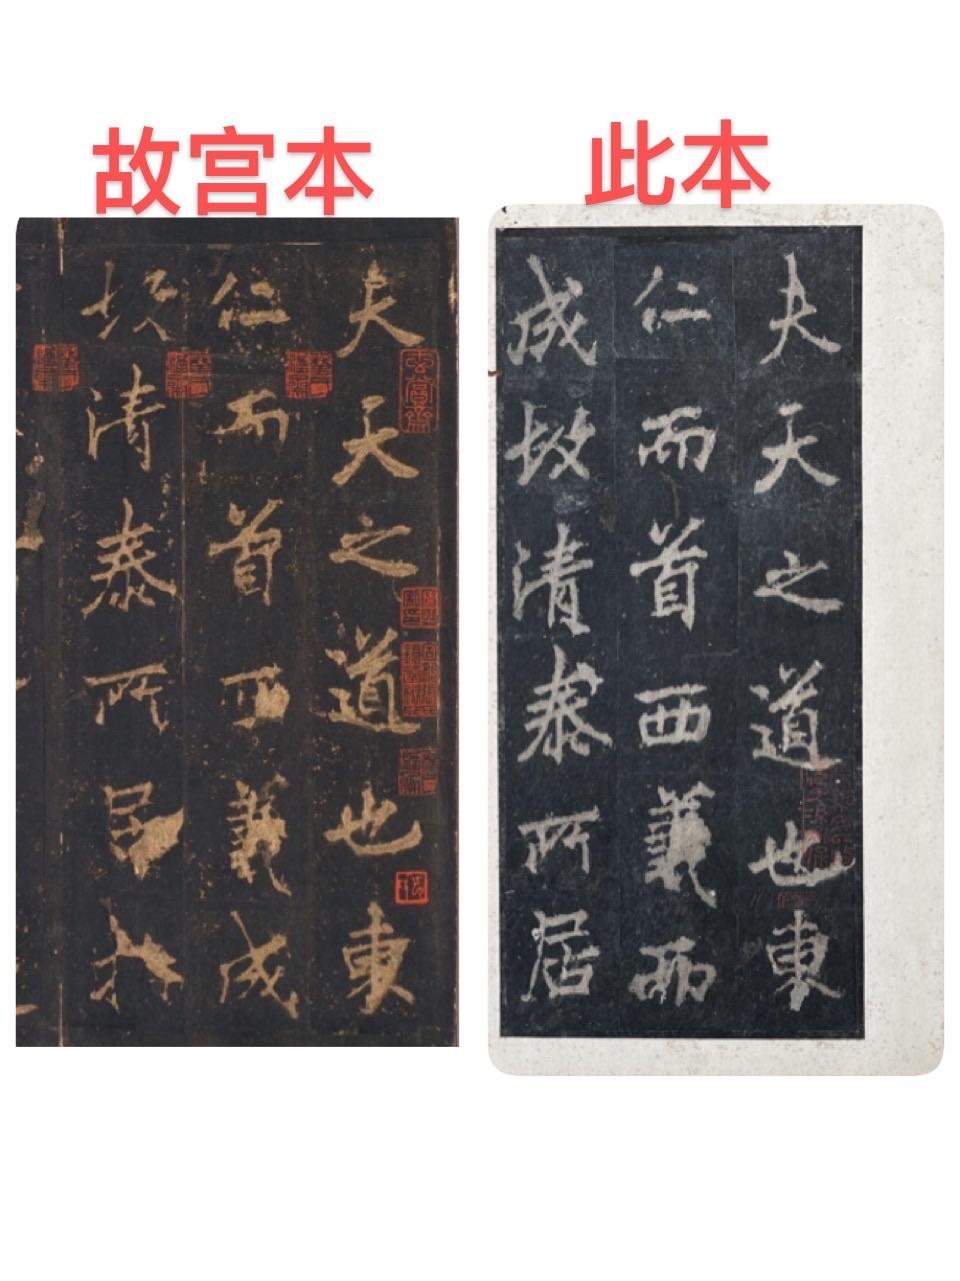 故宫本
此本
夫天之道也東
仁而首西義成
故清泰所居
夫天之道也東
仁而首西義而
成故清泰所居